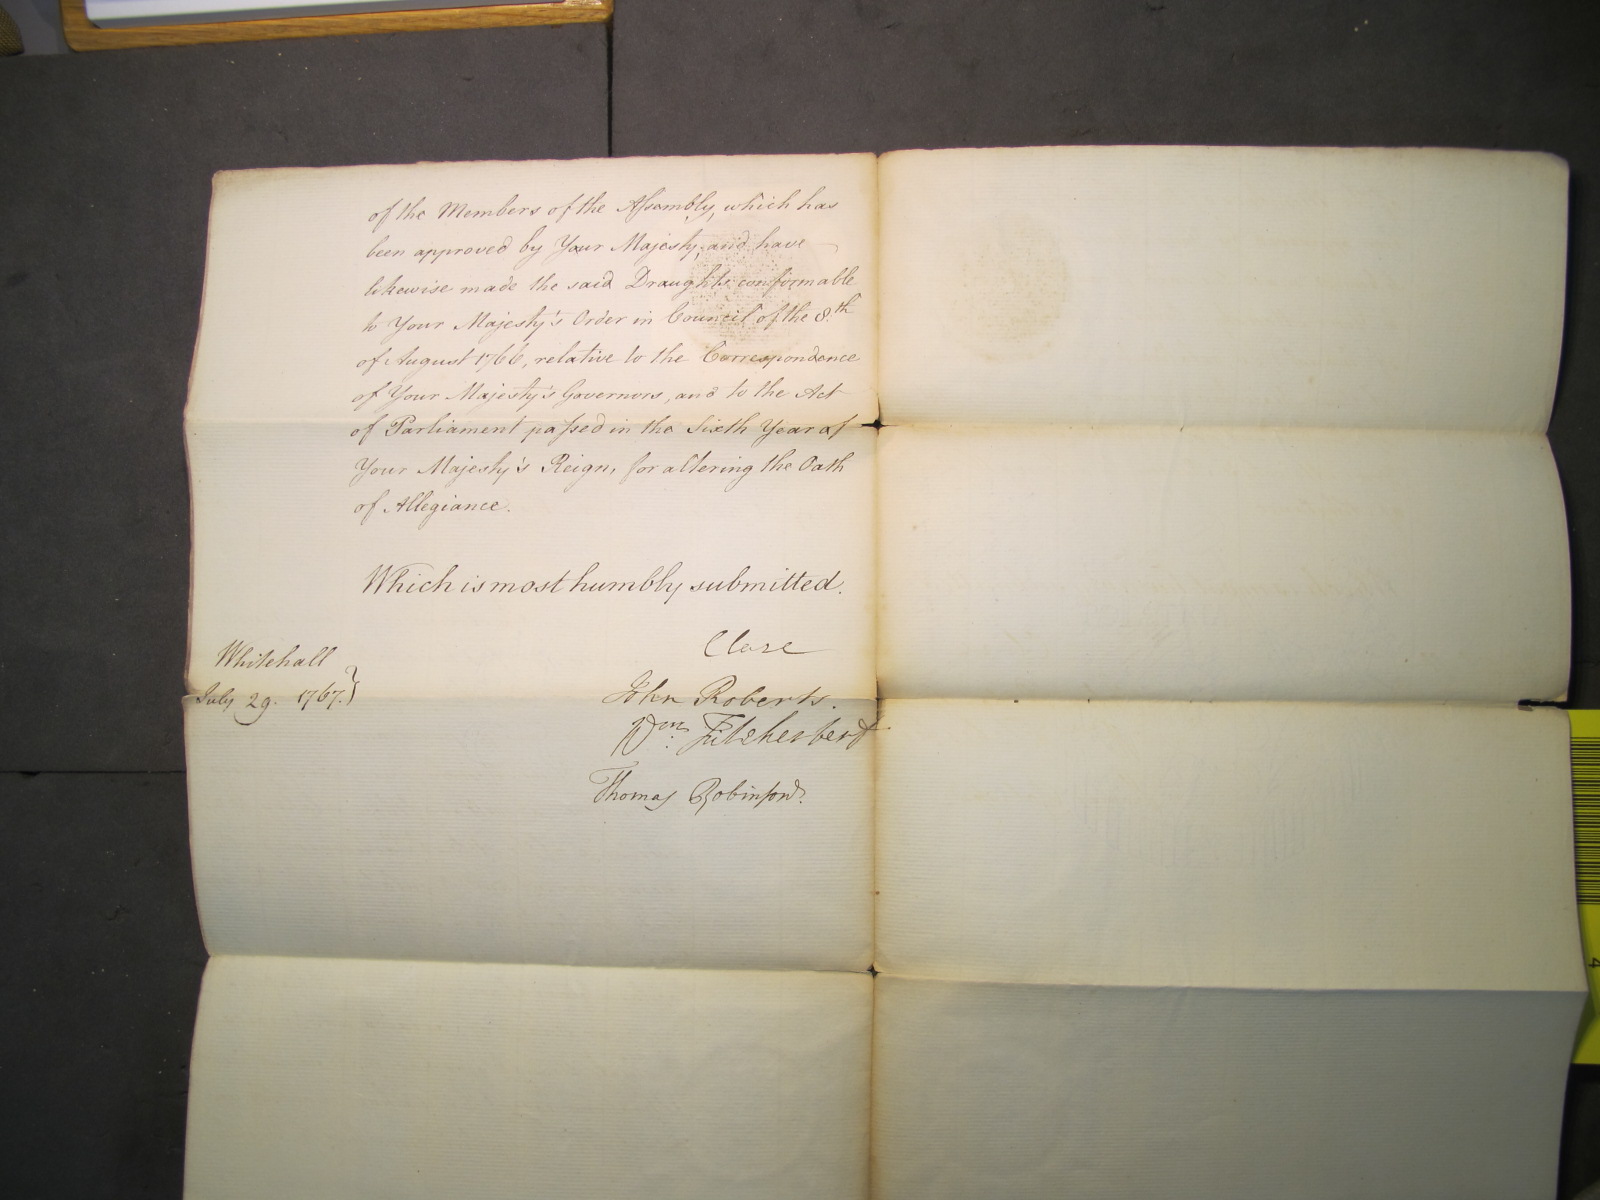 of the Members of the Assembly, which has
been approved by Your Majesty; and have
likewise made the said Draughts conformable
to Your Majesty's Order in Council of the 8.th
of August 1766, relative to the Correspondence
of Your Majesty's Governors, and to the Act
of Parliament passed in the Sixth Year of
Your Majesty's Reign, for altering the Oath
of Allegiance.
Which is most humbly submitted.
Clare
Whitehall
July 29. 1767.}
John Roberts.
Wm: Fitzherbert
Thomas Robinson.
4